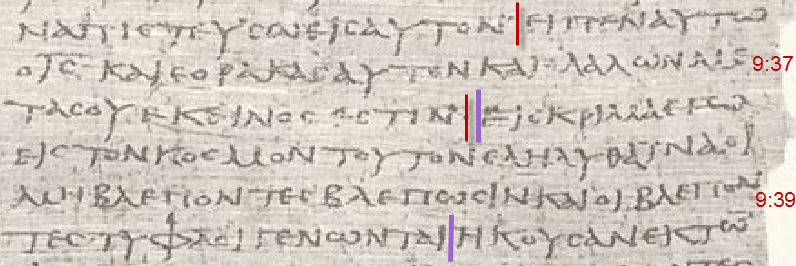 ΝΑΠΙϹΤΕΥϹΩΕΙϹΑΥΤΟΝ ΕΙΠΕΝΑΥΤΩ
ΟΙ̅Ϲ̅ ΚΑΙΕΟΡΑΚΑϹΑΥΤΟΝΚΑΙΟΛΑΛΩΝΜΕ 9:37
ΤΑϹΟΥΕΚΕΙΝΟϹΕϹΤΙΝ ΕΙϹΚΡΙΜΑΕΓΩ
ΕΙϹΤΟΝΚΟϹΜΟΝΤΟΥΤΟΝΕΛΗΛΥΘΑΙΝΑΟΙ
ΜΗΒΛΕΠΟΝΤΕϹΒΛΕΠΩϹΙΝΚΑΙΟΙΒΛΕΠΟΝ 9:39
ΤΕϹΤΥΦΛΟΙΓΕΝΩΝΤΑΙ ΗΚΟΥϹΑΝΕΚΤΩ